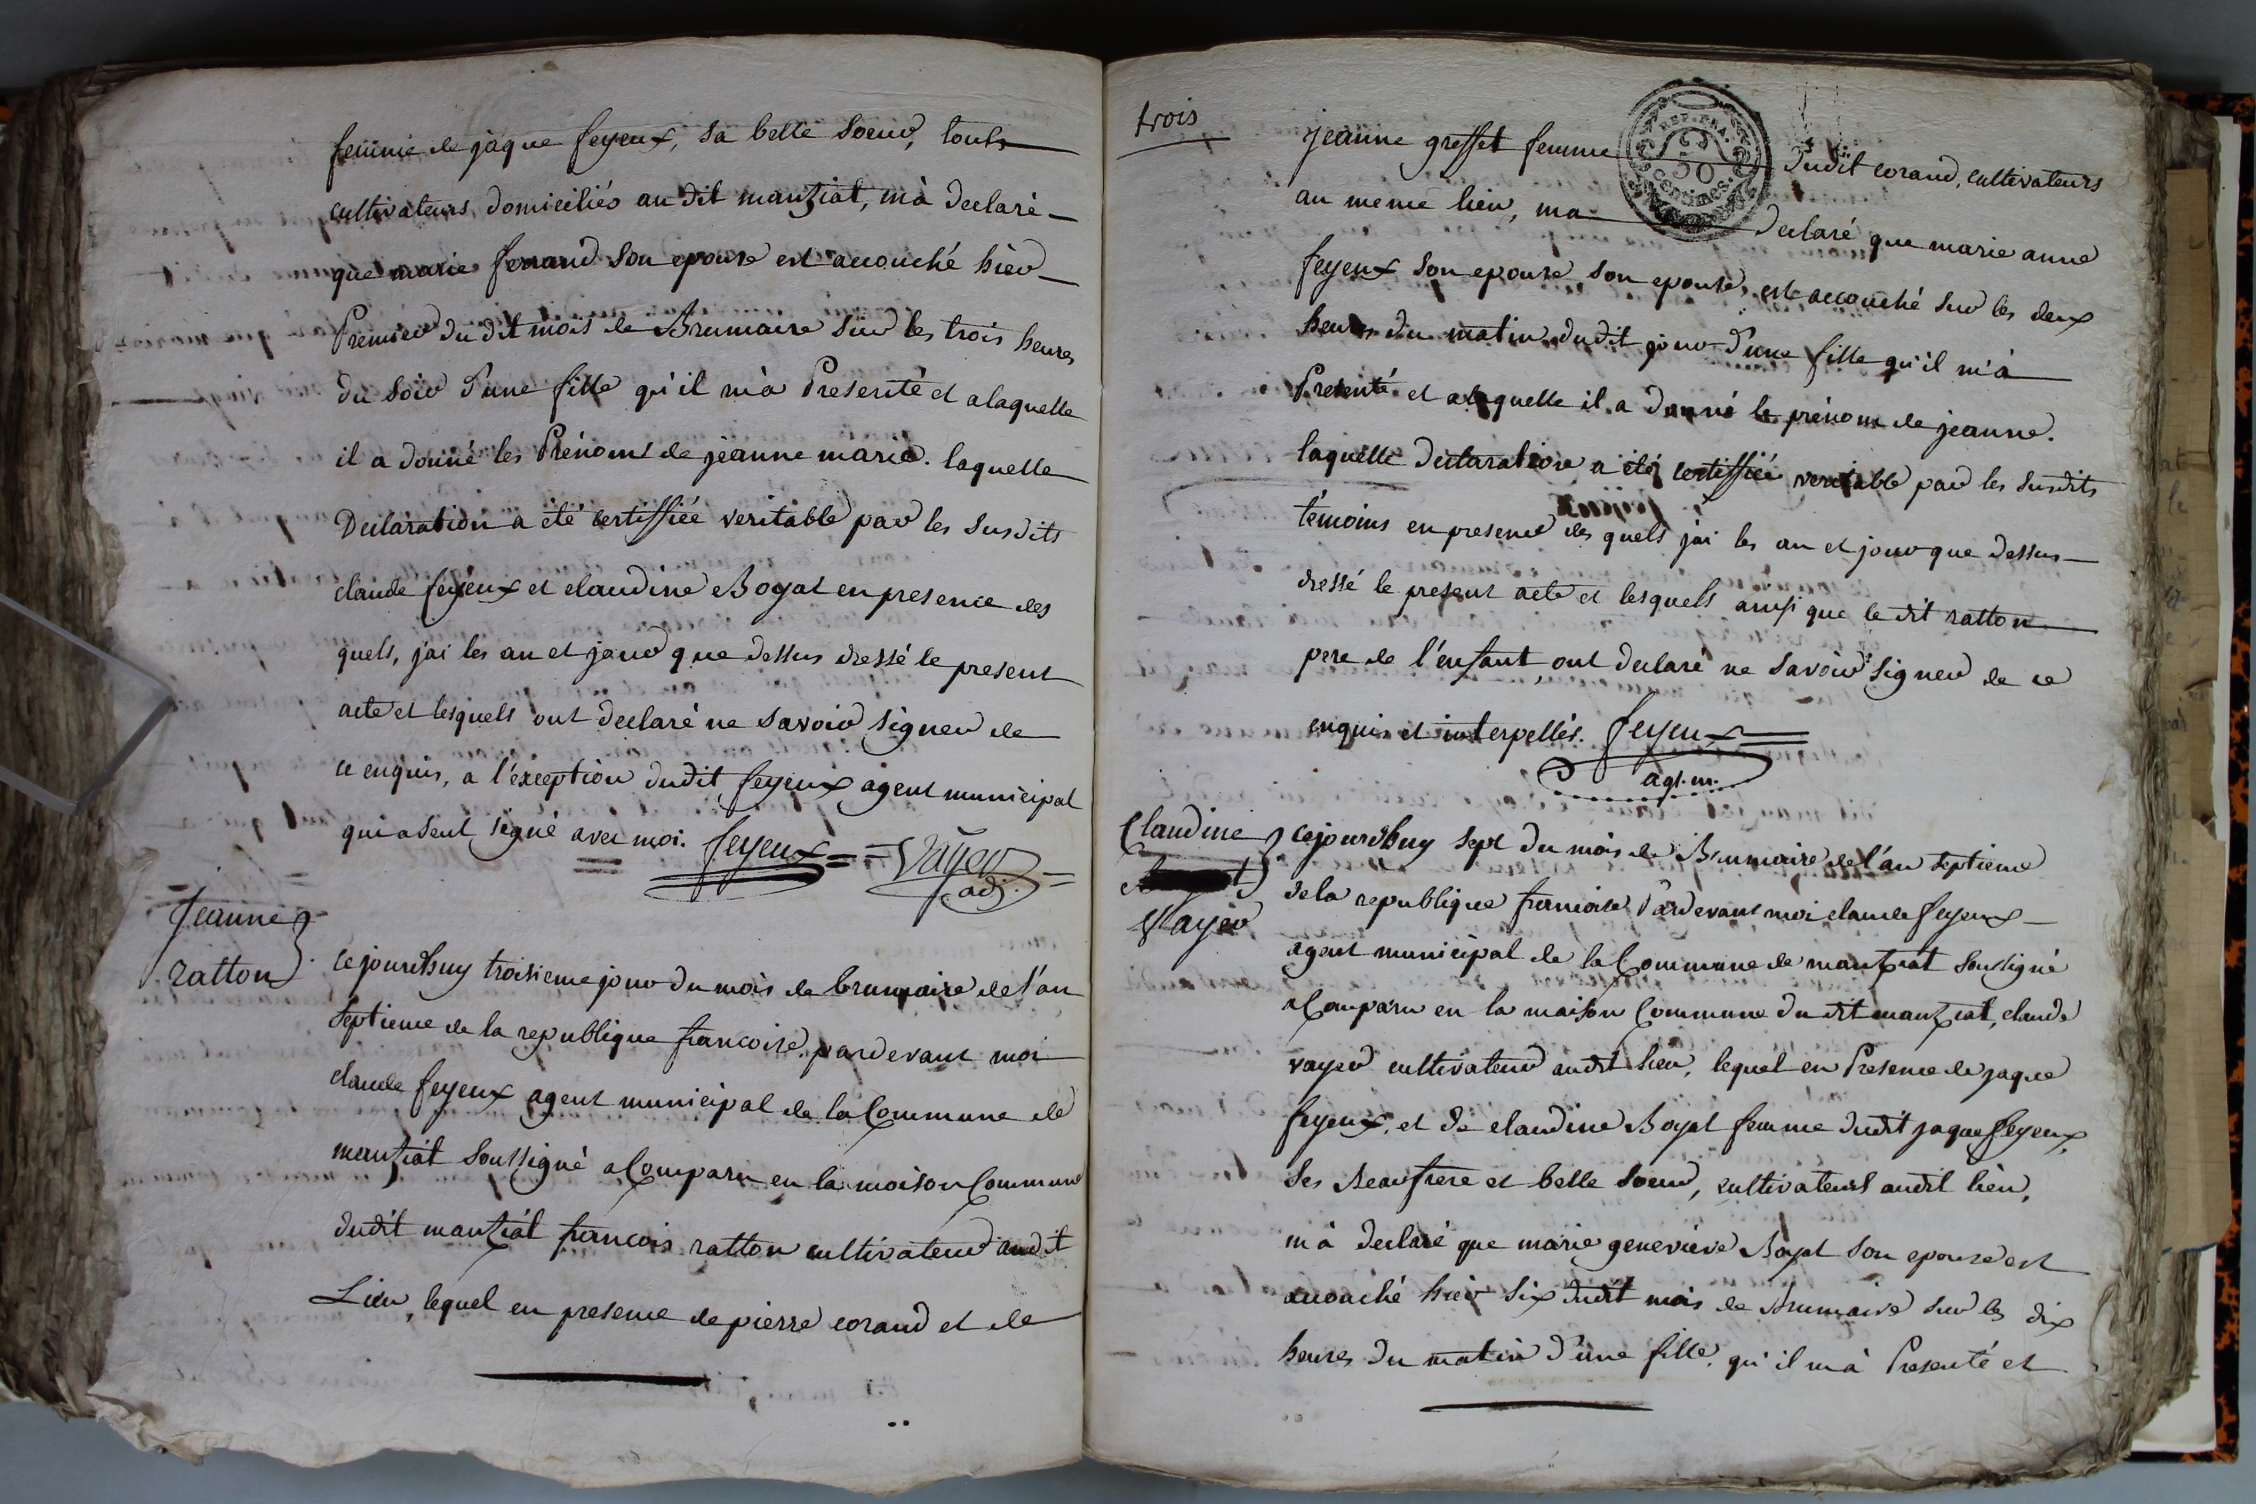 femme de jaque feyeux, sa belle soeur, touts
cultivateurs domiciliés au dit manziat, m'à declaré
que marie ferrand son epouse est acouché hièr
Premier du dit mois de Brumaire sur les trois heures
du soir d'une fille qu'il m'à Presenté et a laquelle
il a donné les Prénoms de jeanne marie. laquelle
Declaration a été certiffiée veritable par les susdits
claude feyeux et claudine Boyat en presence des
quels, j'ai les an et jour que dessus dressé le present
acte et lesquels ont declaré ne savoir signer de
ce enquis, a l'exception dudit feyeux agent municipal
qui a seul signé avec moi. feyeux Vayer
adj.
Jeanne
ratton
Cejourd'huy troisieme jour du mois de brumaire de l'an
septieme de la republique francoise. pardevant moi
claude feyeux agent municipal de la Commune de
manziat soussigné a Comparu en la maison Commune
dudit manziat francois ratton cultivateur audit
Lieu, lequel en presence de pierre corand et de
trois
REP. FRA.
50
centimes.
jeanne greffet femme dudit corand, cultivateurs
au meme lieu, ma declaré que marie anne
feyeux son epouse son epouse, est accouché sur les deux
heures du matin dudit jour d'une fille qu'il m'à
Presenté et a laquelle il a donné le prénom de jeanne.
laquelle declaration a été certiffiée veritable par les susdits
témoins en presence des quels j'ai les an et jour que dessus
dressé le present acte et lesquels ainsi que le dit ratton
pere de l'enfant, ont declaré ne savoir signer de ce
enquis et interpellés. feyeux
agt. m.
Claudine
Vayer
cejourd'huy sept du mois de Brumaire de l'an septieme
de la republique francoise Pardevant moi claude feyeux
agent municipal de la Commune de manziat soussigné
a Comparu en la maison Commune du dit manziat, claude
vayer cultivateur audit lieu, lequel en Presence de jaque
feyeux, et de claudine Boyat femme dudit jaque feyeux,
ses Beaufrere et belle soeur, cultivateurs audit lieu,
m'à declaré que marie geneviève Boyat son epouse est
acouché hièr six dudit mois de Brumaire sur les dix
heures du matin d'une fille, qu'il m'à Presenté et